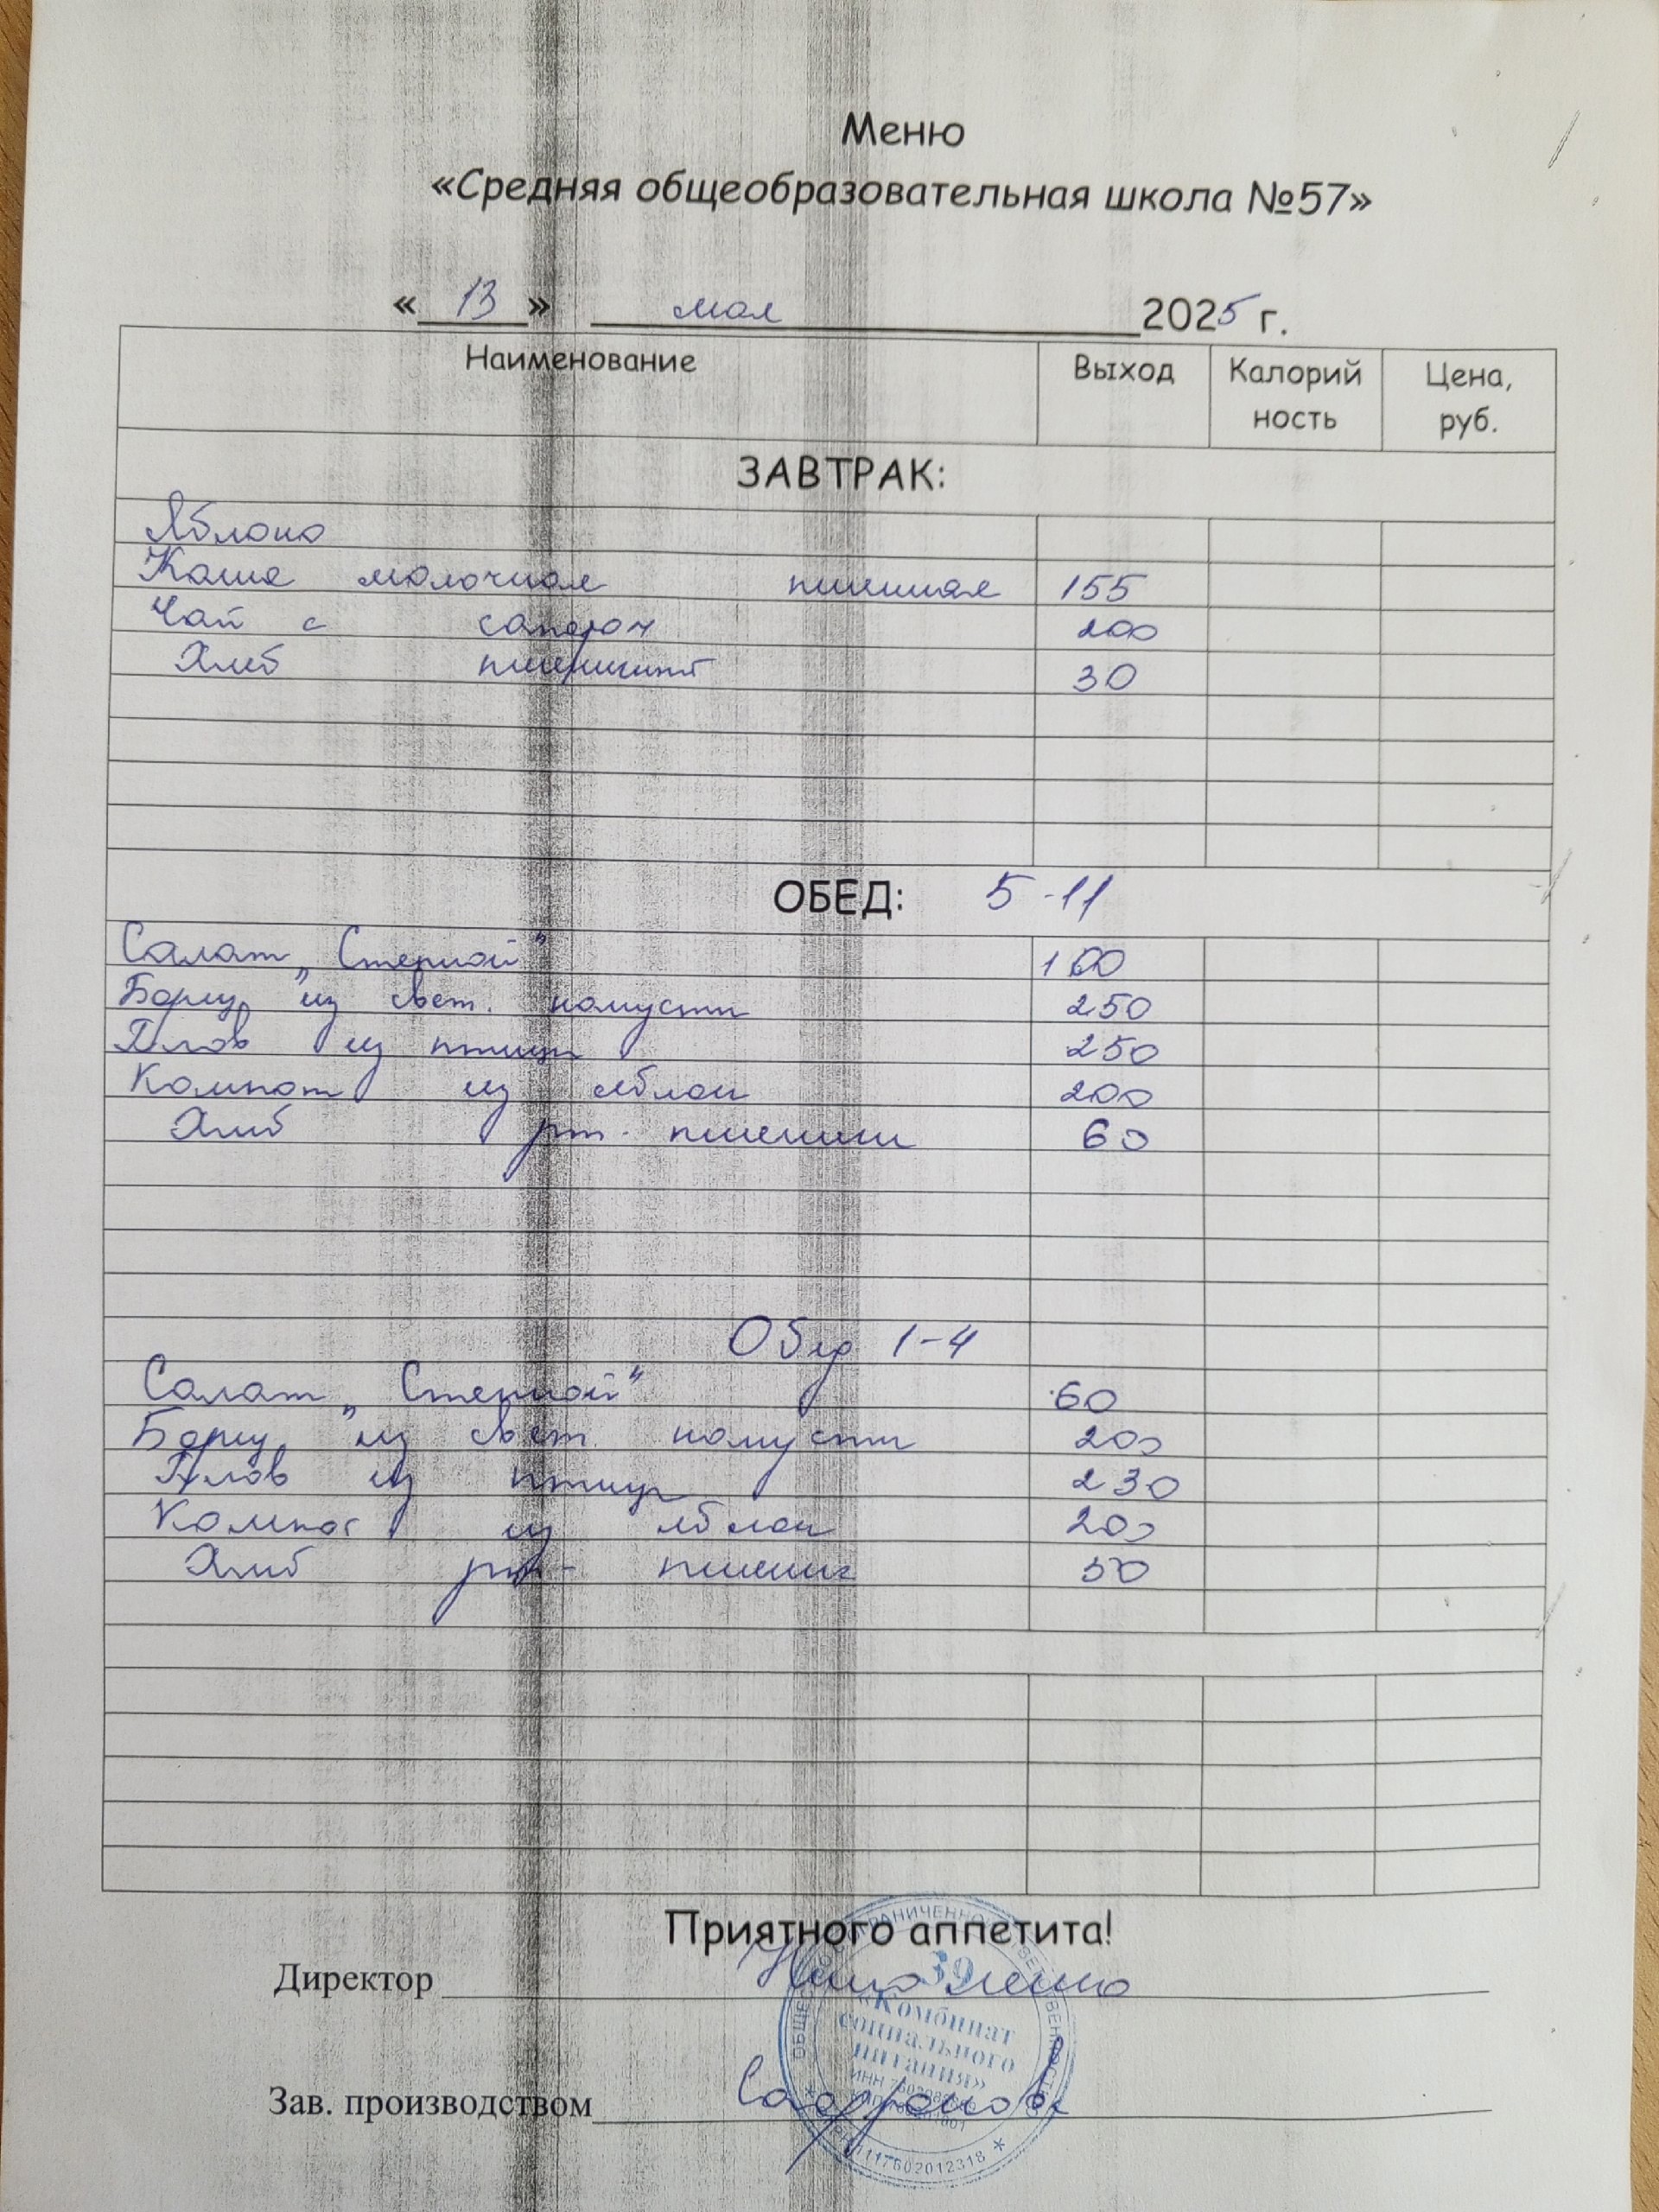 Меню
«Средняя общеобразовательная школа №57»
« 13 » мая 2025 г.
Наименование Выход Калорий ность Цена, руб.
ЗАВТРАК:
Яблоко
Каша молочная пшенная 155
Чай с сахаром 200
Хлеб пшеничный 30
ОБЕД: 5-11
Салат „Степной" 100
Борщ из свеж. капусты 250
Плов из птицы 250
Компот из яблок 200
Хлеб рж. пшенич 60
Обед 1-4
Салат „Степной" 60
Борщ из свеж капусты 200
Плов из птицы 230
Компот из яблок 200
Хлеб рж- пшенич 50
Приятного аппетита!
Директор
39
«Комбинат
социального
питания»
ИНН
Зав. производством Сафронова
1117602012318